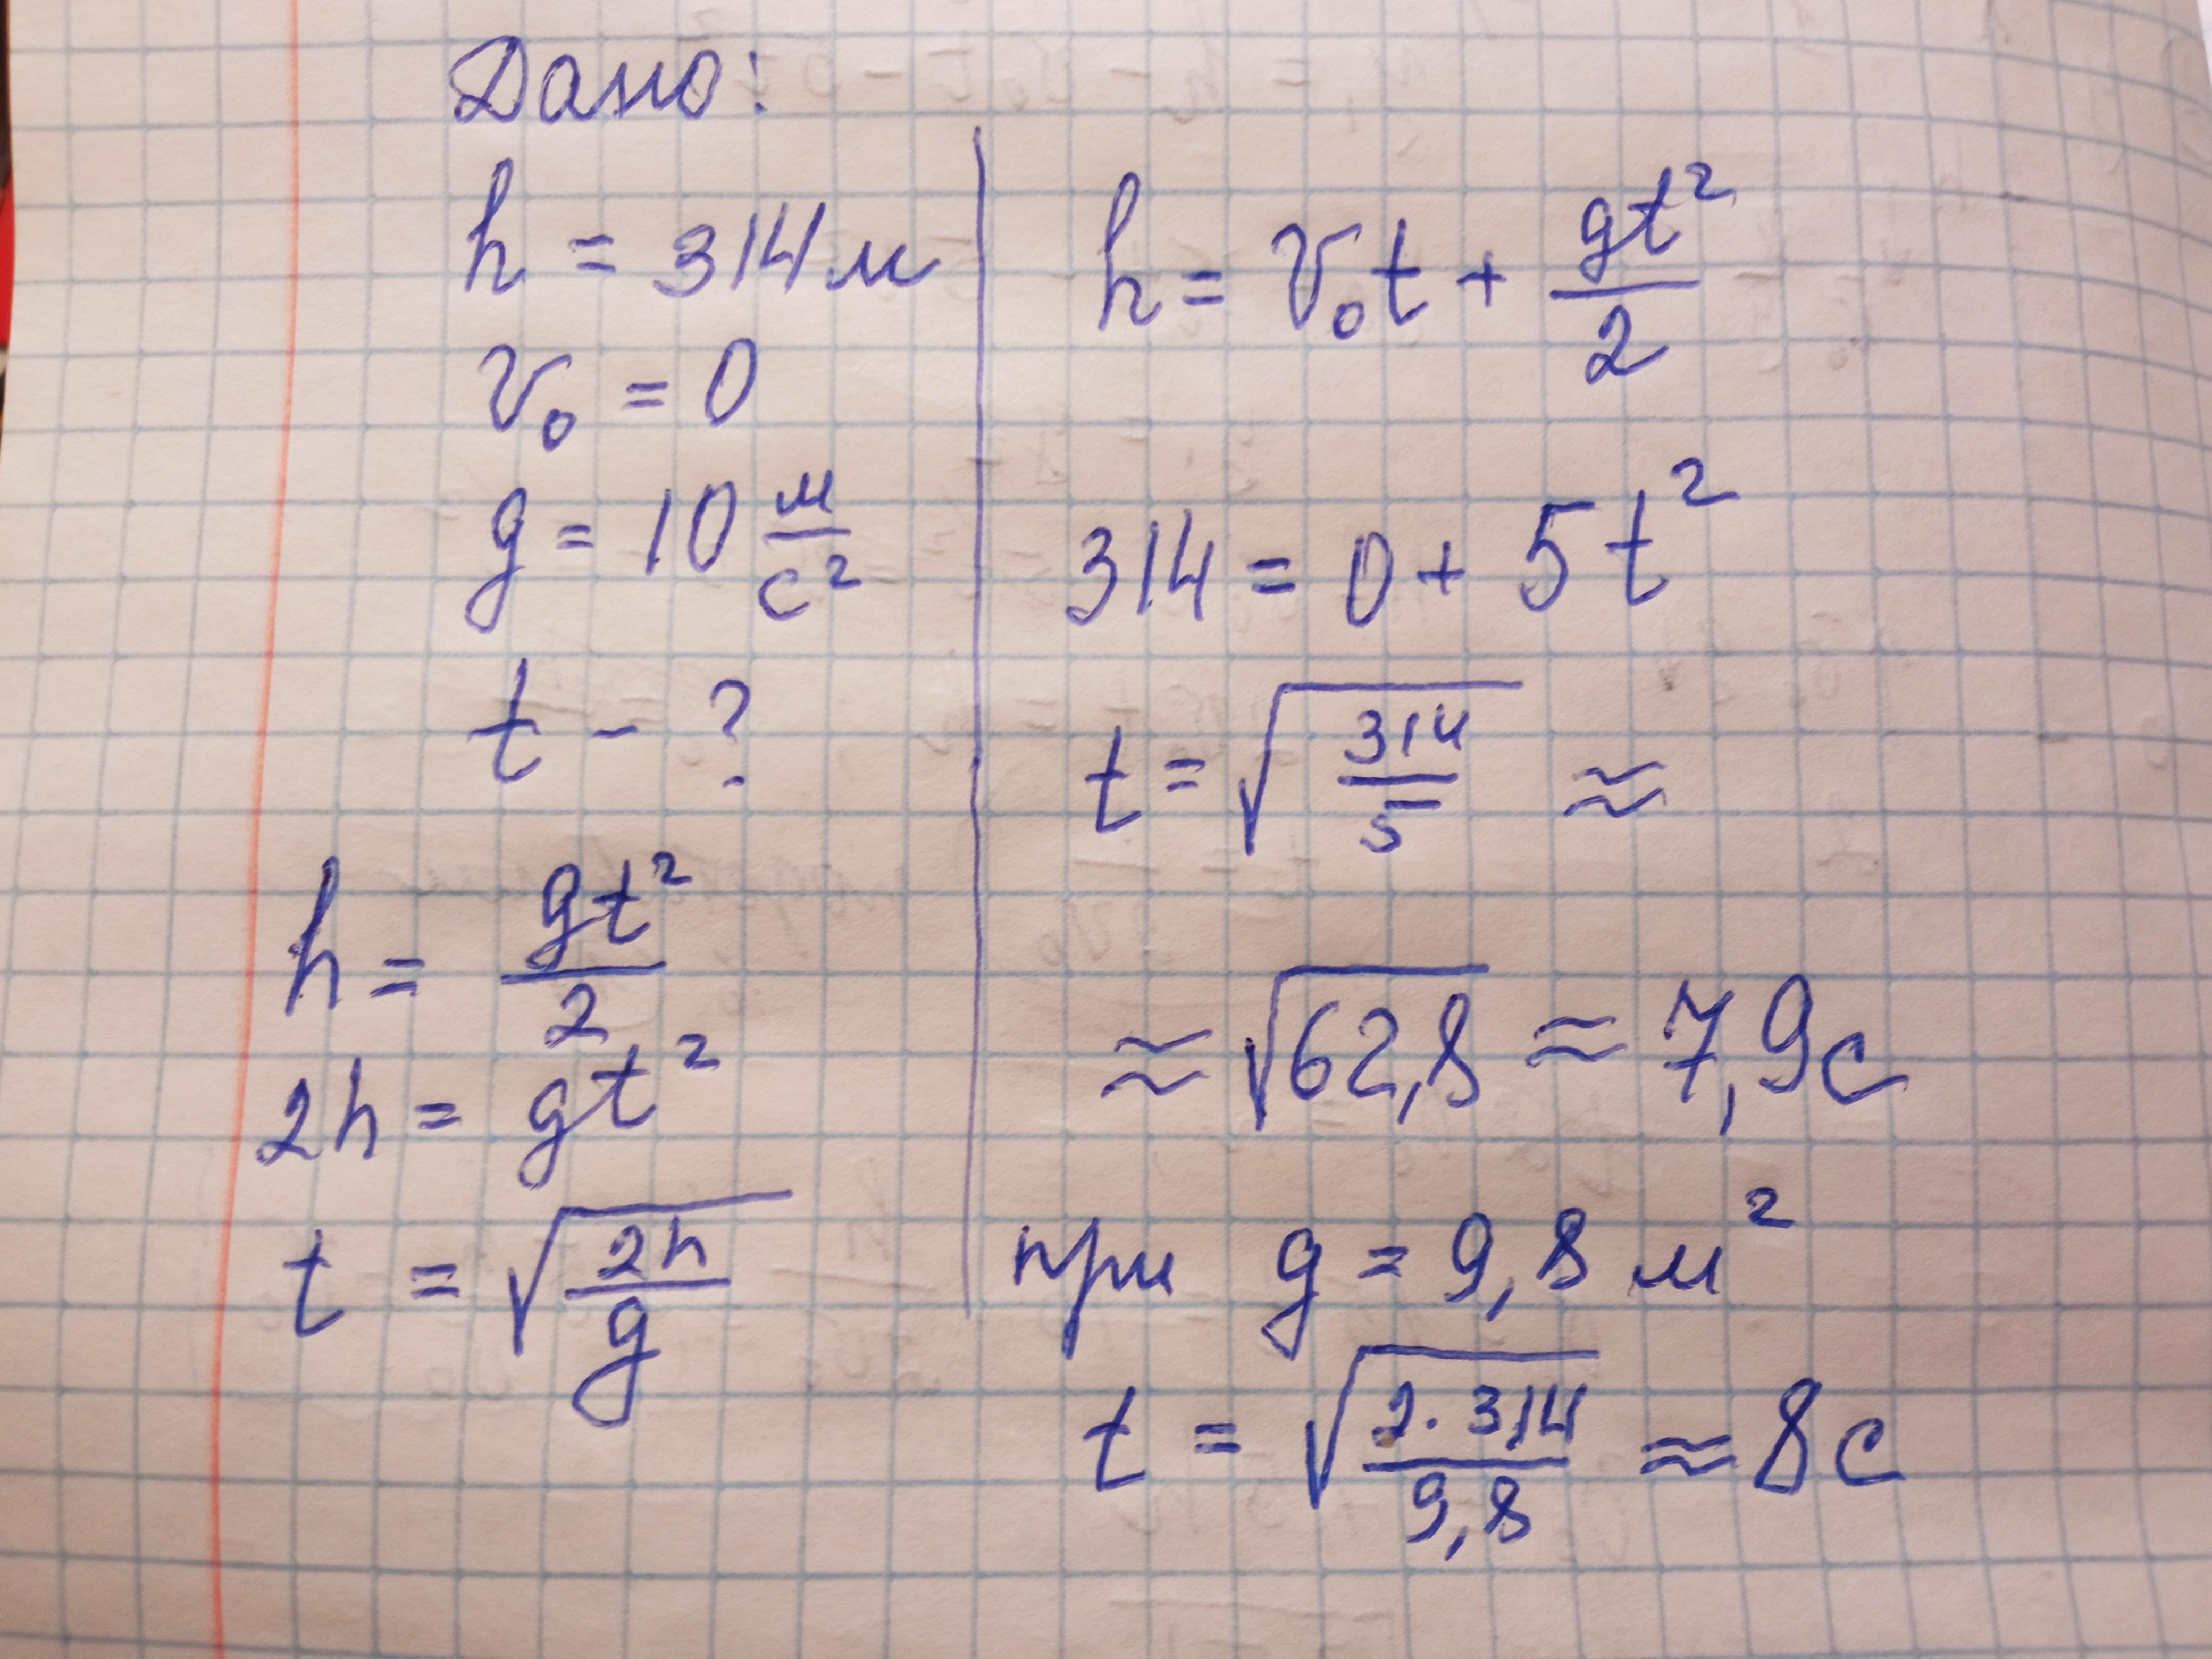 Дано:
h = 314 м
v₀ = 0
g = 10 м/с²
t - ?
h = gt²/2
2h = gt²
t = √(2h/g)
h = v₀t + gt²/2
314 = 0 + 5t²
t = √(314/5) ≈
≈ √62,8 ≈ 7,9с
при g = 9,8 м²
t = √(2·314/9,8) ≈ 8с